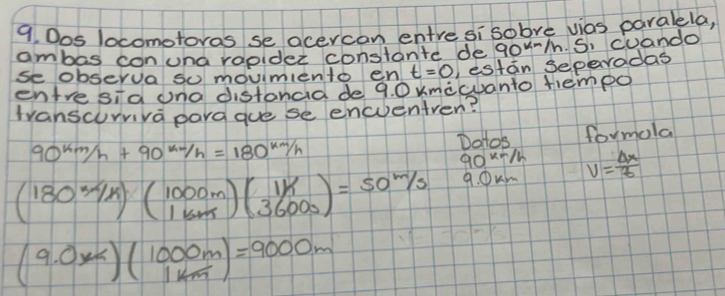 9. Dos locomotoras se acercan entre si sobre vias paralela,
ambas con una rapidez constante de 90 km/h. Si cuando
se observa su movimiento en t=0, están seperadas
entre si a una distancia de 9.0 km ¿cuanto tiempo
transcurrirá para que se encuentren?
90 km/h + 90 km/h = 180 km/h
Datos
formola
90 km/h
9.0 km
V = Δx/t
(180 km/h) (1000m/1 km) (1h/3600s) = 50 m/s
(9.0 km) (1000m/1 km) = 9000m